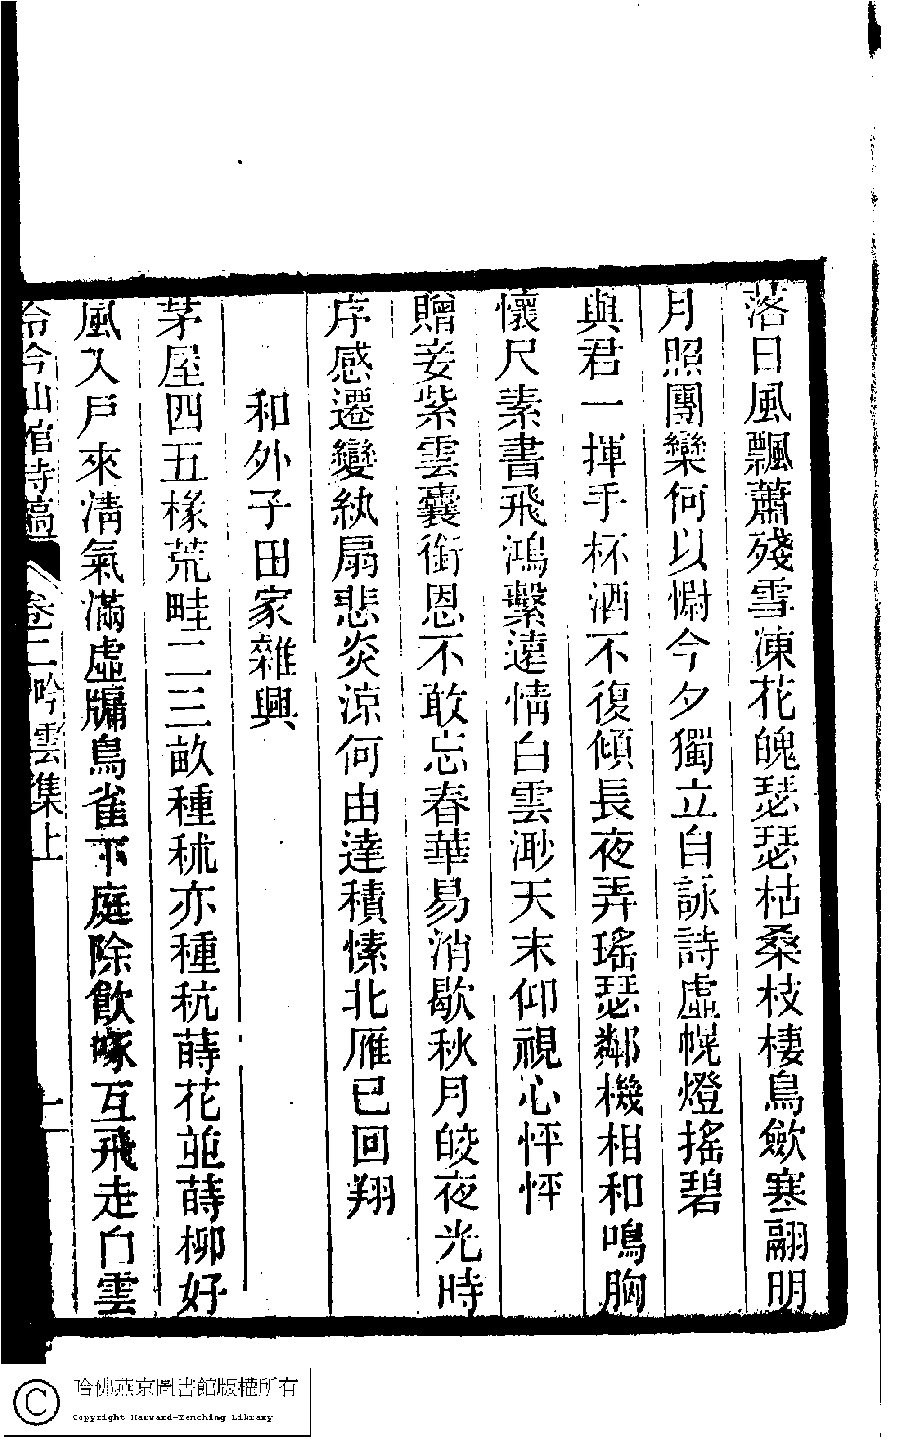 落日風飄蕭殘雪凍花魄瑟瑟枯桑枝棲鳥歛寒翮明
月照團欒何以慰今夕獨立自詠詩虛幌燈搖碧
與君一揮手杯酒不復傾長夜弄瑤瑟鄰機相和鳴胸
懷尺素書飛鴻繫遠情白雲渺天末仰視心怦怦
贈妾紫雲囊銜恩不敢忘春華易消歇秋月皎夜光時
序感遷變紈扇悲炎涼何由達積愫北雁已回翔
和外子田家雜興
茅屋四五椽荒畦二三畝種秫亦種秔蒔花並蒔柳好
風入戶來淸氣滿虛牖鳥雀下庭除飮啄互飛走白雲
冷吟山館詩稿 卷二吟雲集上
哈佛燕京圖書館版權所有
Copyright Harvard-Yenching Library